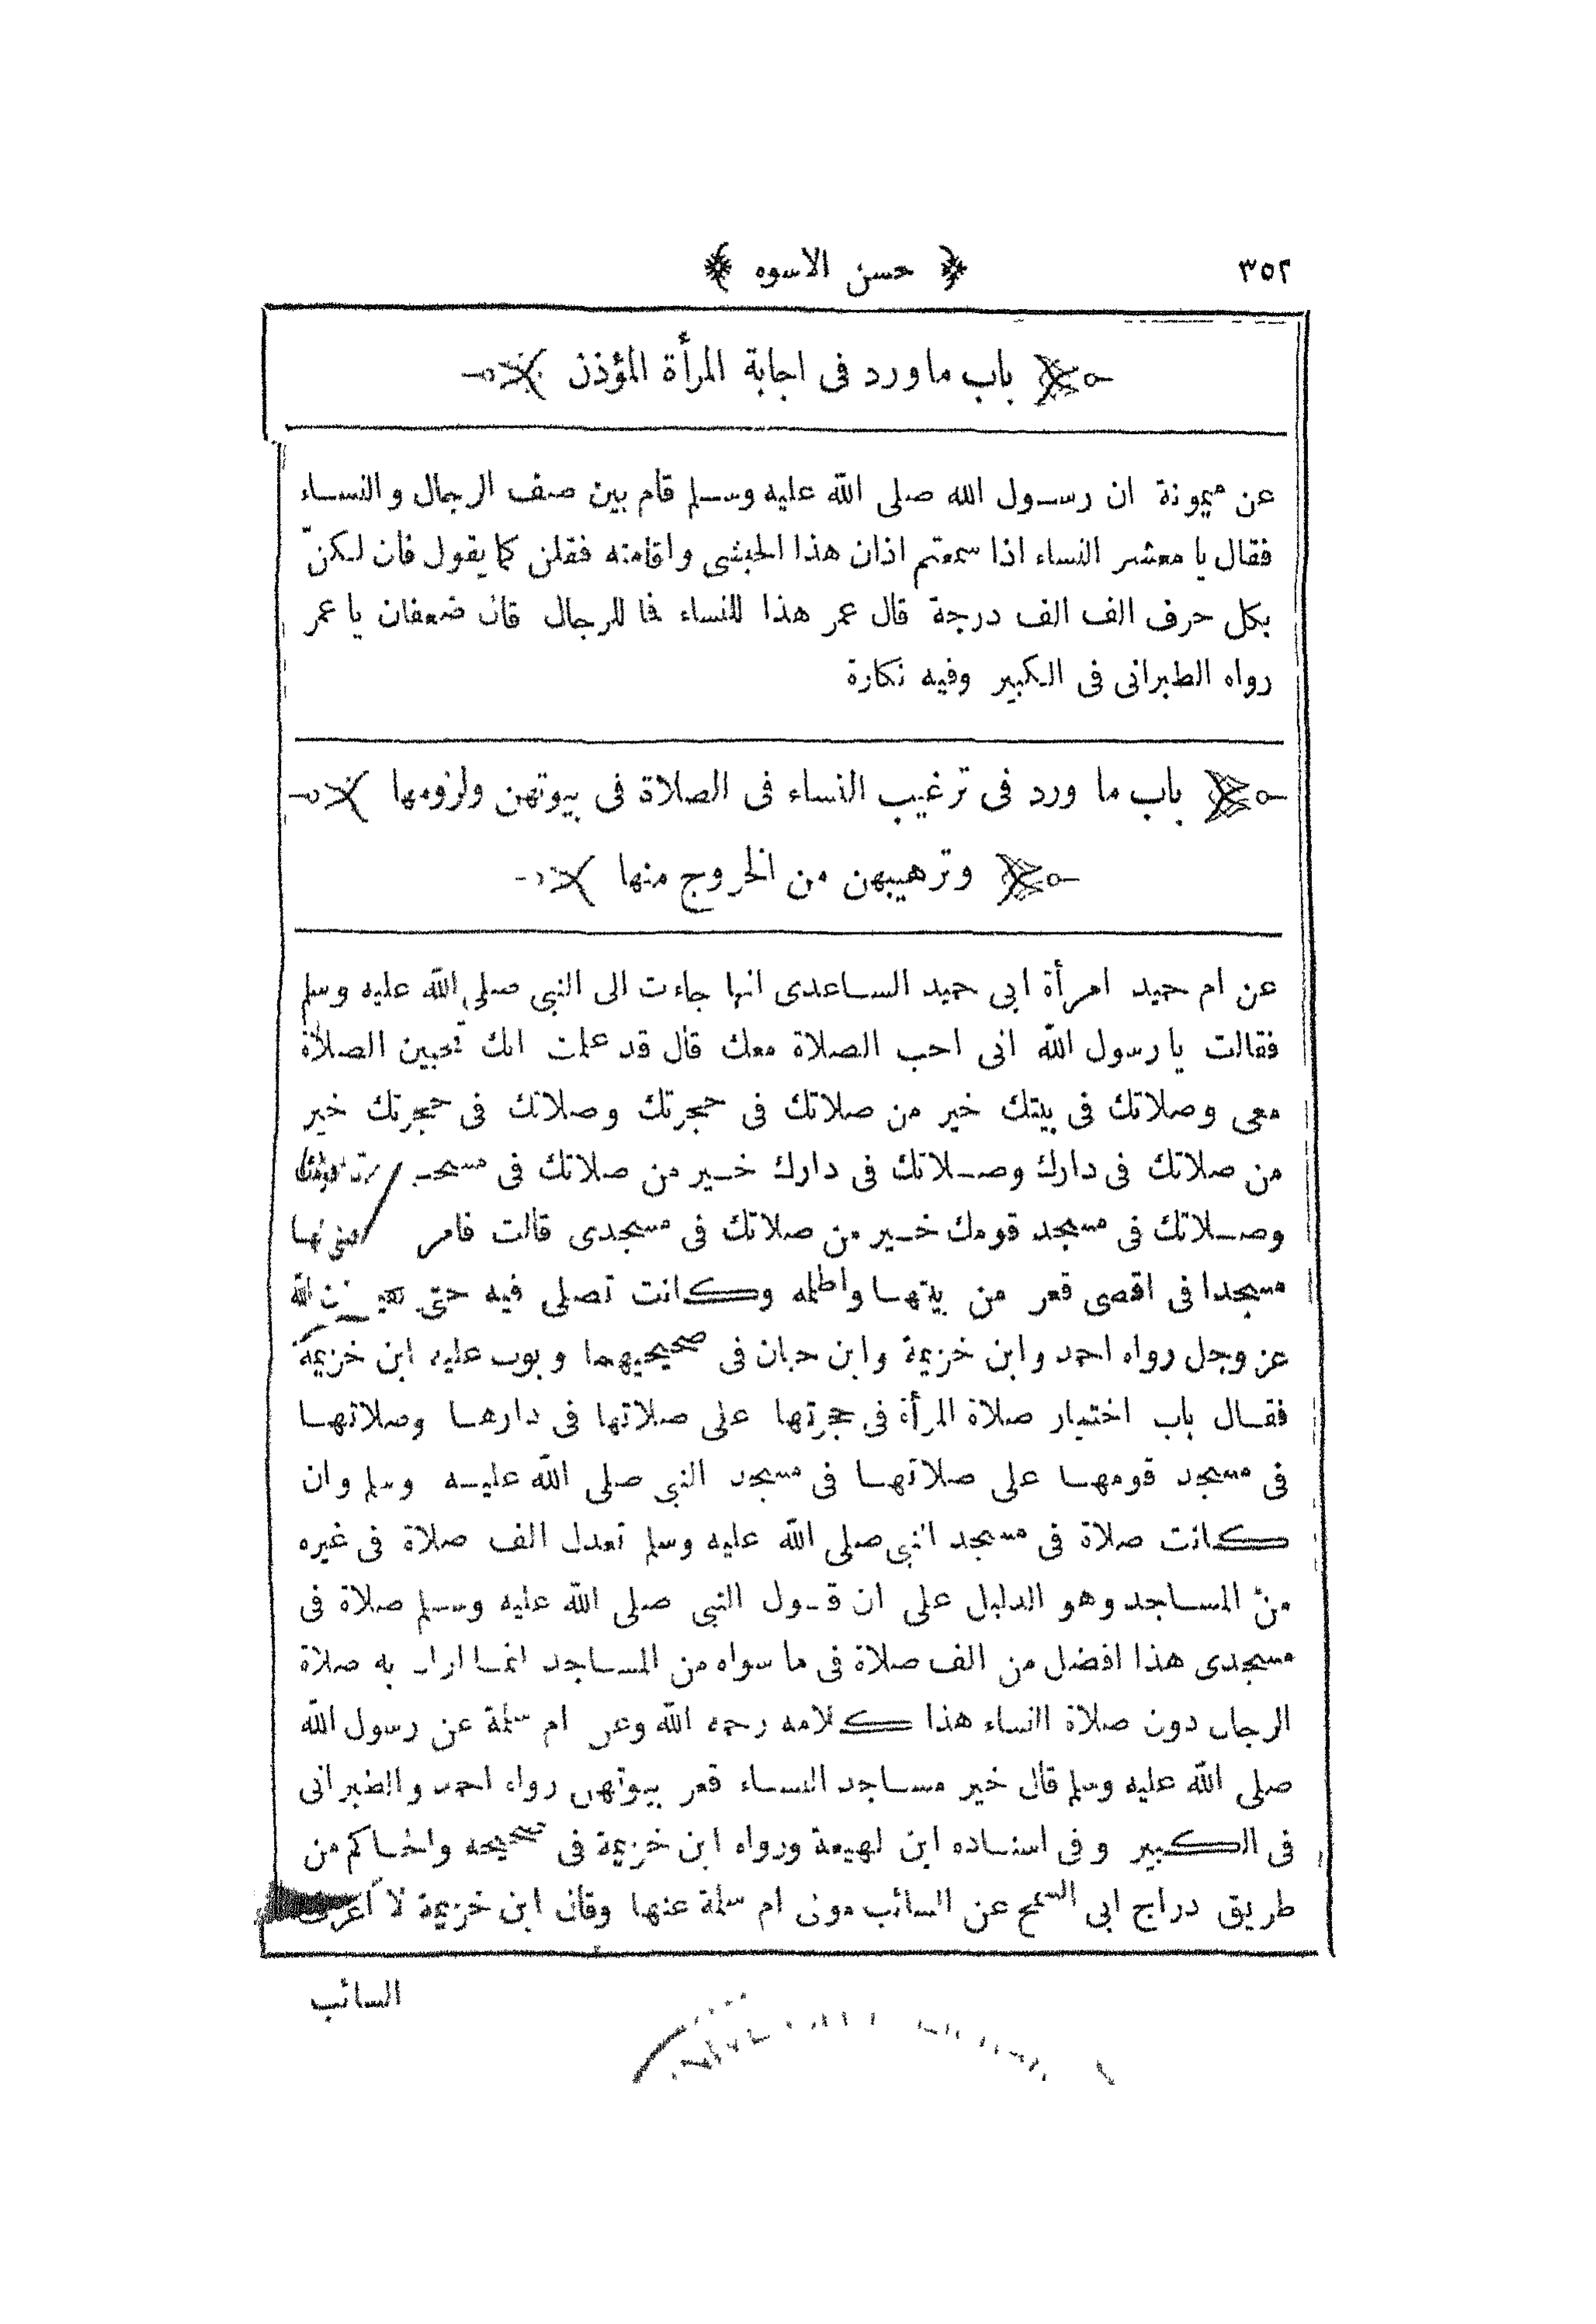 ٣٥٢
﴿ حسن الاسوه ﴾
باب ماورد فى اجابة المرأة المؤذن
عن ميمونة ان رسول الله صلى الله عليه وسلم قام بين صف الرجال والنساء
فقال يا معشر النساء اذا سمعتم اذان هذا الحبشى واقامته فقلن كما يقول فان لكنّ
بكل حرف الف الف درجة قال عمر هذا للنساء فما للرجال قال ضعفان يا عمر
رواه الطبرانى فى الكبير وفيه نكارة
باب ما ورد فى ترغيب النساء فى الصلاة فى بيوتهن ولزومها
وترهيبهن من الخروج منها
عن ام حميد امرأة ابى حميد الساعدى انها جاءت الى النبى صلى الله عليه وسلم
فقالت يا رسول الله انى احب الصلاة معك قال قد علمت انك تحبين الصلاة
معى وصلاتك فى بيتك خير من صلاتك فى حجرتك وصلاتك فى حجرتك خير
من صلاتك فى دارك وصلاتك فى دارك خير من صلاتك فى
وصلاتك فى مسجد قومك خير من صلاتك فى مسجدى قالت فامر
مسجدا فى اقصى قعر من بيتها واظلمه وكانت تصلى فيه حتى الله
عز وجل رواه احمد وابن خزيمة وابن حبان فى صحيحيهما وبوب عليه ابن خزيمة
فقال باب اختيار صلاة المرأة فى حجرتها على صلاتها فى دارها وصلاتها
فى مسجد قومها على صلاتها فى مسجد النبى صلى الله عليه وسلم وان
كانت صلاة فى مسجد النبى صلى الله عليه وسلم تعدل الف صلاة فى غيره
من المساجد وهو الدليل على ان قول النبى صلى الله عليه وسلم صلاة فى
مسجدى هذا افضل من الف صلاة فى ما سواه من المساجد انما اراد به صلاة
الرجال دون صلاة النساء هذا كلامه رحمه الله وعن ام سلمة عن رسول الله
صلى الله عليه وسلم قال خير مساجد النساء قعر بيوتهن رواه احمد والطبرانى
فى الكبير وفى اسناده ابن لهيعة ورواه ابن خزيمة فى صحيحه والحاكم من
طريق دراج ابى السمح عن السائب مولى ام سلمة عنها وقال ابن خزيمة لا اعرف
السائب